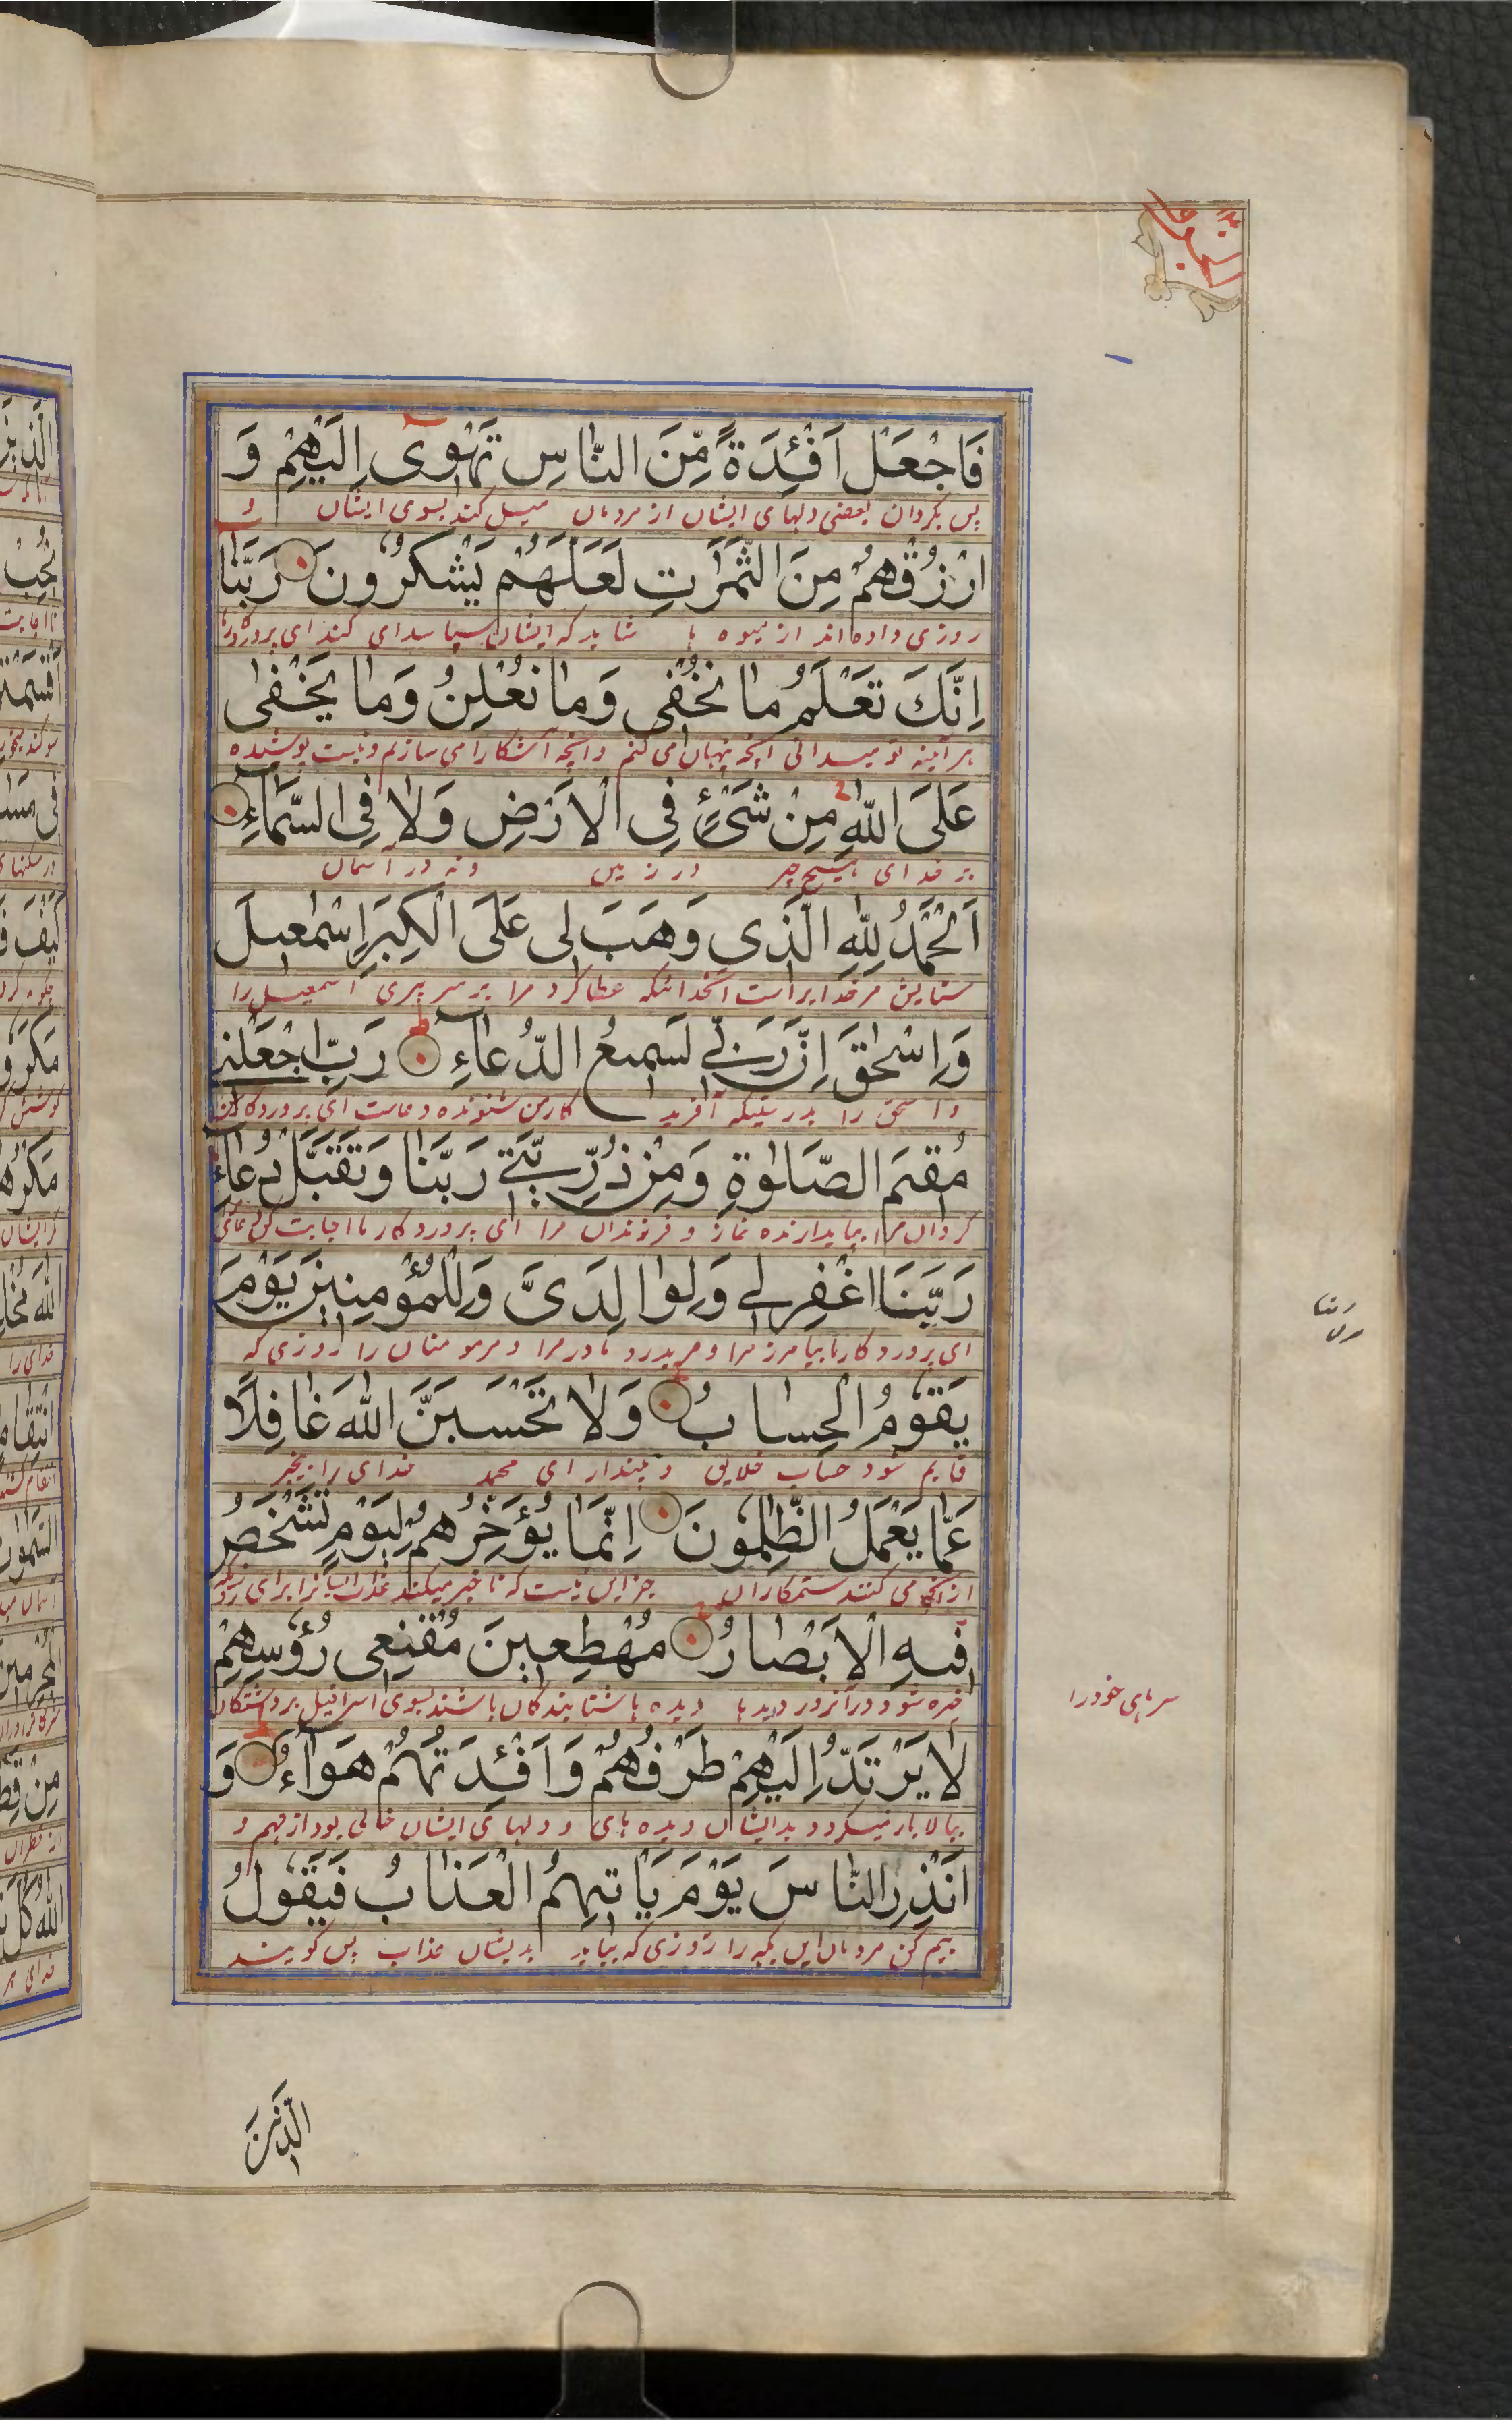 فَاجْعَلْ اَفْئِدَةً مِّنَ النّاسِ تَهْوى اِلَيْهِمْ وَ
پس بگردان بعضی دلهای ایشان از مردمان میل کند بسوی ایشان و
ارْزُقْهُمْ مِنَ الثَّمَرٰتِ لَعَلَّهُمْ يَشْكُرُونَ رَبَّنا
روزی داده اند از میوه ها شاید که ایشان سپاسداری کنند ای پروردگار ما
اِنَّكَ تَعْلَمُ ما نُخْفى وَما نُعْلِنُ وَما يَخْفى
هر آینه تو میدانی آنچه پنهان می کنم وآنچه آشکارا می سازم ونیست پوشیده
عَلَى اللّٰهِ مِنْ شَىْءٍ فِى الْاَرْضِ وَلا فِى السَّمآءِ
بر خدای هیچ چیز در زمین ونه در آسمان
اَلْحَمْدُ لِلّٰهِ الَّذى وَهَبَ لى عَلَى الْكِبَرِ اِسْمٰعيلَ
ستایش مر خدایراست آنخدائیکه عطا کرد مرا بر سر پیری اسمعیل را
وَاِسْحٰقَ اِنَّ رَبّى لَسَميعُ الدُّعآءِ رَبِّ اجْعَلْنى
واسحق را بدرستیکه آفرید کار من شنونده دعاست ای پروردکار من
مُقيمَ الصَّلٰوةِ وَمِنْ ذُرِّيَّتى رَبَّنا وَتَقَبَّلْ دُعآءِ
گردان مرا بپایدارنده نماز و فرزندان مرا ای پروردکار ما اجابت کن دعای
رَبَّنَا اغْفِرْ لى وَلِوالِدَىَّ وَلِلْمُؤْمِنينَ يَوْمَ
ای پروردکار ما بیامرز مرا و مر پدر و مادر مرا و مر مومنان را روزی که
يَقُومُ الْحِسابُ وَلا تَحْسَبَنَّ اللّٰهَ غافِلًا
قایم شود حساب خلایق و مپندار ای محمد خدای را بیخبر
عَمّا يَعْمَلُ الظّٰلِمُونَ اِنَّما يُؤَخِّرُهُمْ لِيَوْمٍ تَشْخَصُ
از آنچه می کنند ستمکاران جز این نیست که تاخیر میکند عذاب ایشانرا برای روزیکه
فيهِ الْاَبْصارُ مُهْطِعينَ مُقْنِعى رُؤُسِهِمْ
خیره شود در آنروز دیدها دیده ها شتابندکان باشند بسوی اسرافیل بردارندگان
سرهای خود را
لا يَرْتَدُّ اِلَيْهِمْ طَرْفُهُمْ وَاَفْئِدَتُهُمْ هَوَآءٌ وَ
ببالا باز نمیگردد بدایشان دیده های و دلهای ایشان خالی بود از فهم و
اَنْذِرِ النّاسَ يَوْمَ يَأْتيهِمُ الْعَذابُ فَيَقُولُ
بیم کن مردمان این مکه را روزی که بیاید بدیشان عذاب پس گویند
الَّذينَ